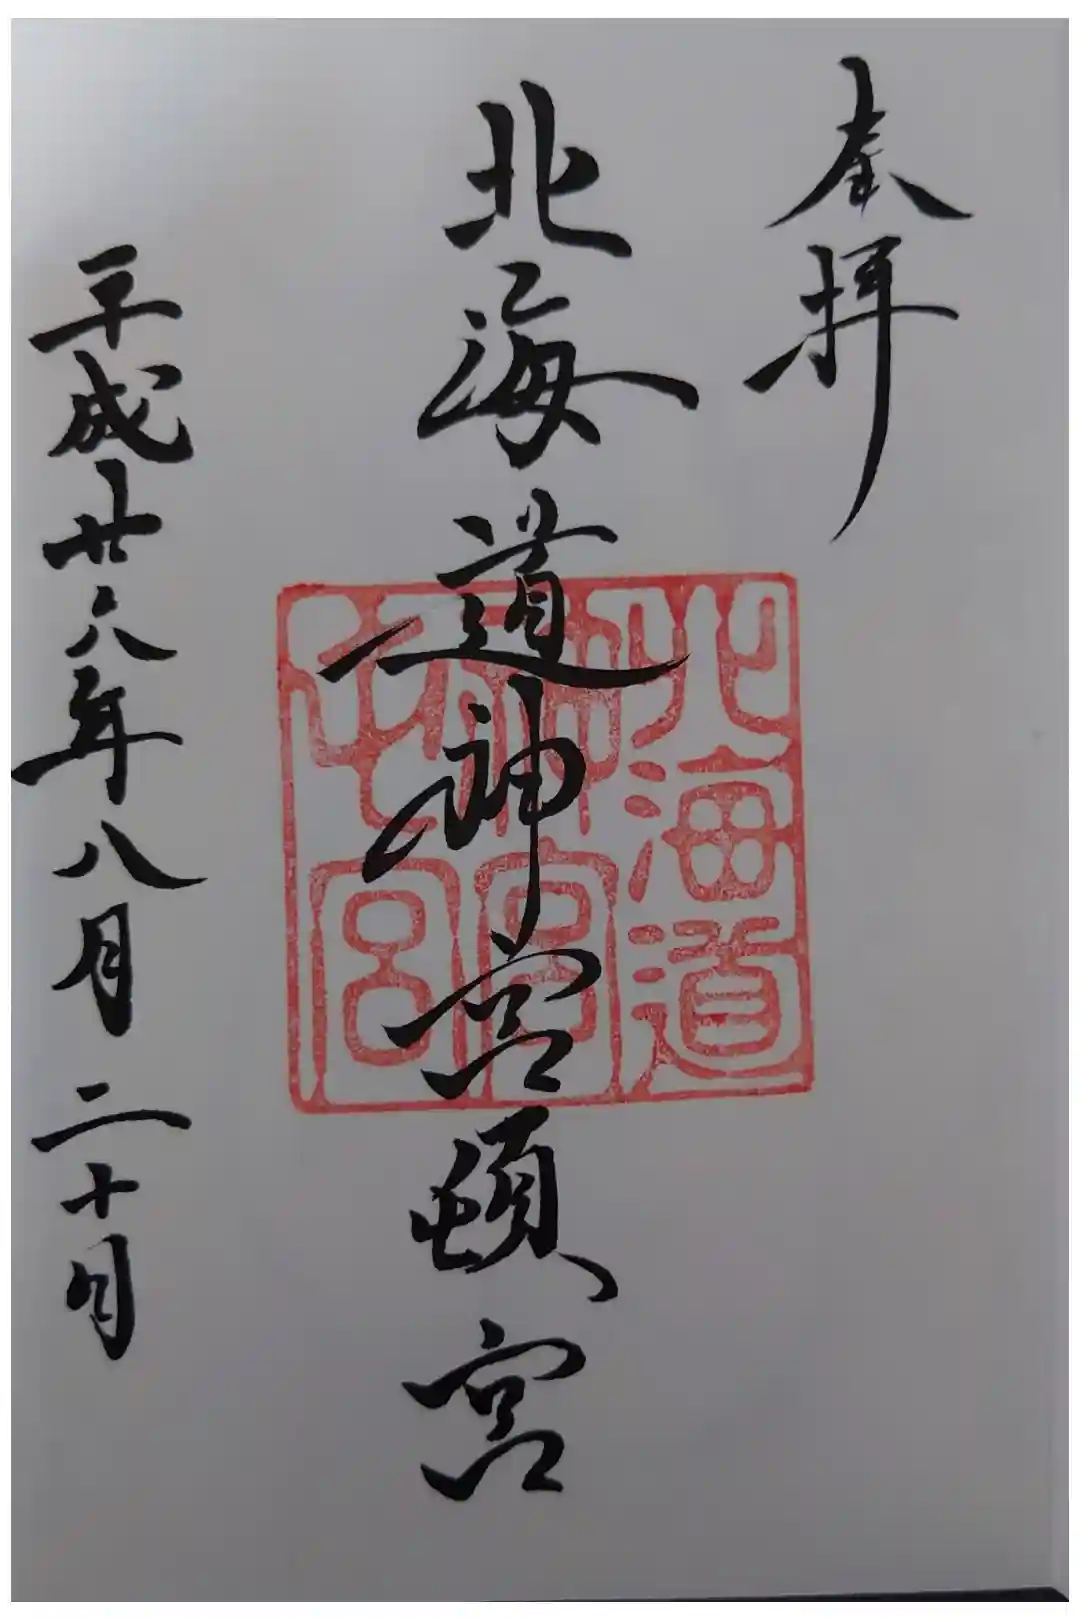 奉拝
北海道神宮頓宮
平成廿六年八月二十日
北海道
神宮
頓宮